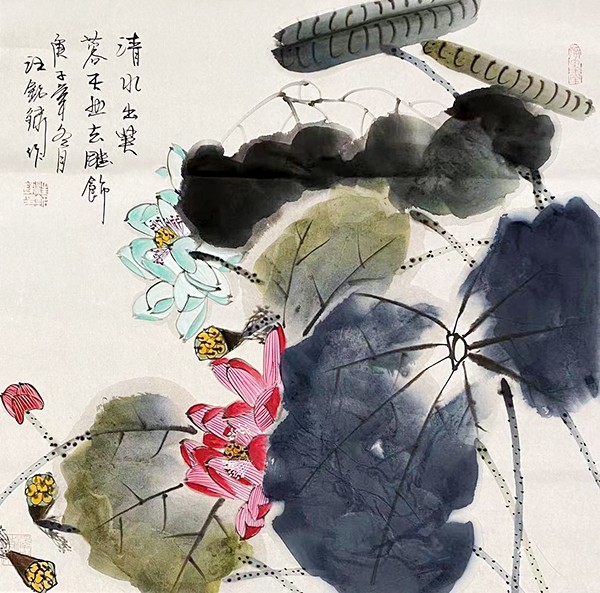 清水出芙
蓉天然去雕飾
庚子年冬月
汪銘作